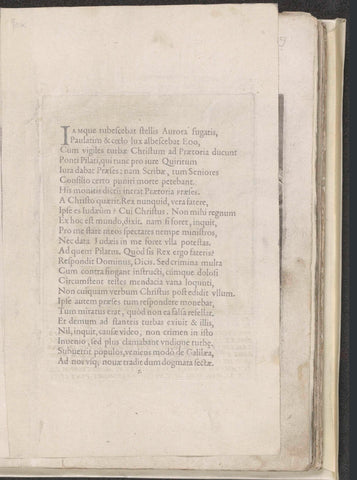 IAMque rubescebat stellis Aurora fugatis,
Paulatim & cœlo lux albescebat Eoo,
Cum vigiles turbæ Christum ad Prætoria ducunt
Ponti Pilati, qui tunc pro iure Quiritum
Iura dabat Præses: nam Scribæ, tum Seniores
Consilio certo puniri morte petebant.
His monitis dictis intrat Prætoria Præses.
A Christo quærit, Rex nunquid, vera fatere,
Ipse es Iudæûm? Cui Christus. Non mihi regnum
Ex hoc est mundo, dixit. nam si foret, inquit,
Pro me stare meos spectares nempe ministros,
Nec data Iudæis in me foret vlla potestas.
Ad quem Pilatus. Quod sis Rex ergo fateris?
Respondit Dominus, Dicis. Sed crimina multa
Cum contra fingant instructi, cumque dolosi
Circumstent testes mendacia vana loquuti,
Non cuiquam verbum Christus post edidit vllum.
Ipse autem præses tum respondere monebat,
Tum miratus erat, quòd non ea falsa refellat.
Et demum ad stanteis turbas exiuit & illis,
Nil, inquit, causæ video, non crimen in isto
Inuenio, sed plus clamabant vndique turbę,
Subuertit populos, veniens modò de Galilæa,
Ad nos vsq; nouæ tradit dum dogmata sectæ.